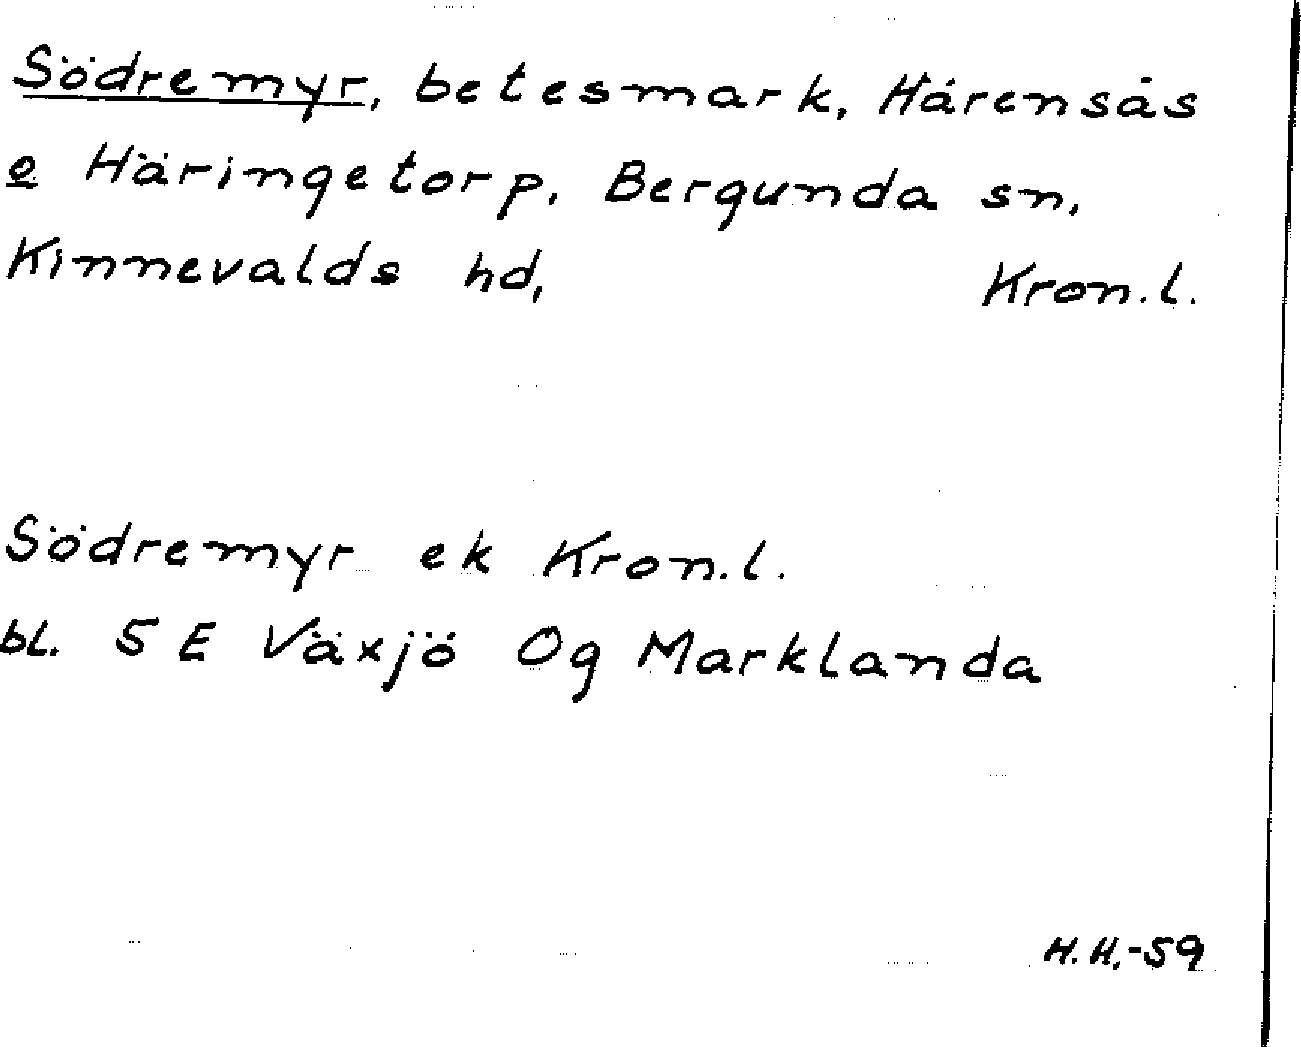 Södremyr, betesmark, Hårensås
e Häringetorp, Bergunda sn,
Kinnevalds hd, Kron.l.
Södremyr ek Kron.l.
bl. 5 E Växjö Og Marklanda
H.H.-59